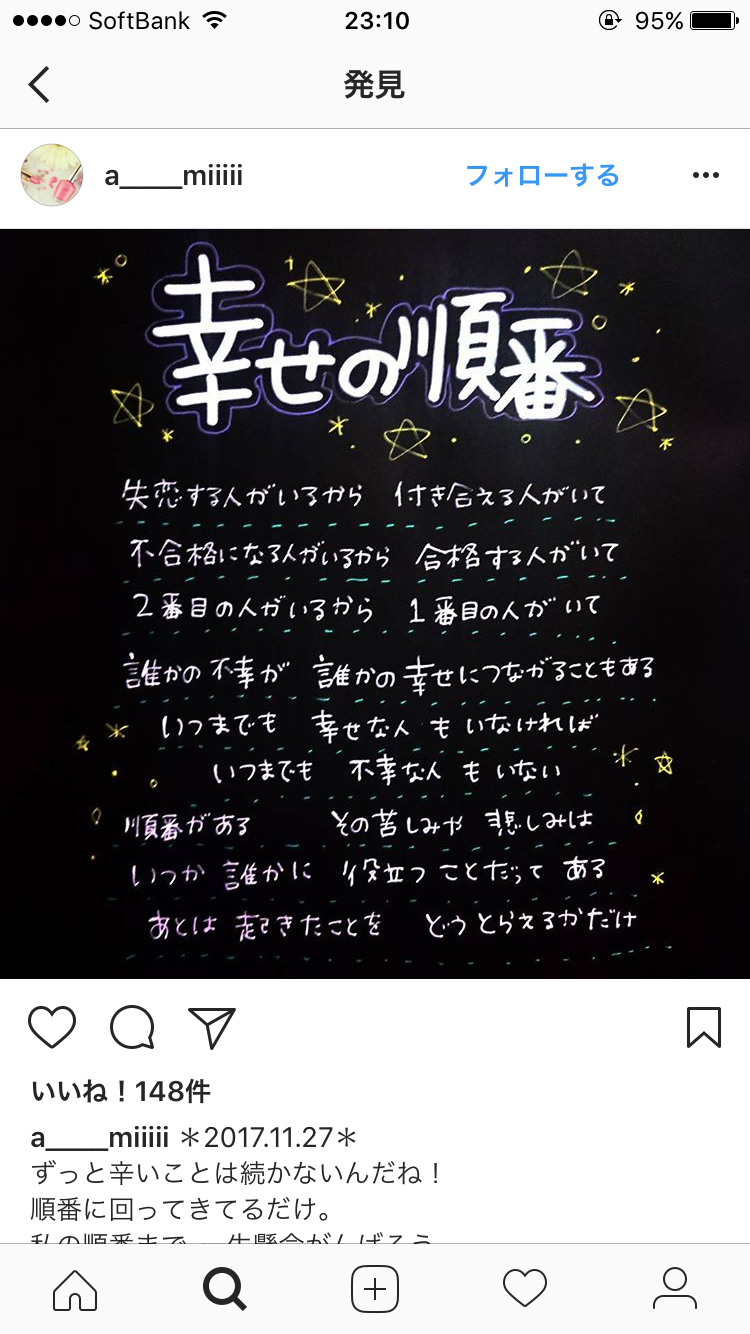 SoftBank 23:10 95%
発見
a_____miiiii フォローする
幸せの順番
失恋する人がいるから 付き合える人がいて
不合格になる人がいるから 合格する人がいて
2番目の人がいるから 1番目の人がいて
誰かの不幸が 誰かの幸せにつながることもある
いつまでも 幸せな人 も いなければ
いつまでも 不幸な人 も いない
順番がある その苦しみや 悲しみは
いつか 誰かに 役立つ ことだって ある
あとは 起きたことを どう とらえるかだけ
いいね！148件
a_____miiiii ＊2017.11.27＊
ずっと辛いことは続かないんだね！
順番に回ってきてるだけ。
私の順番まで、一生懸命がんばろう